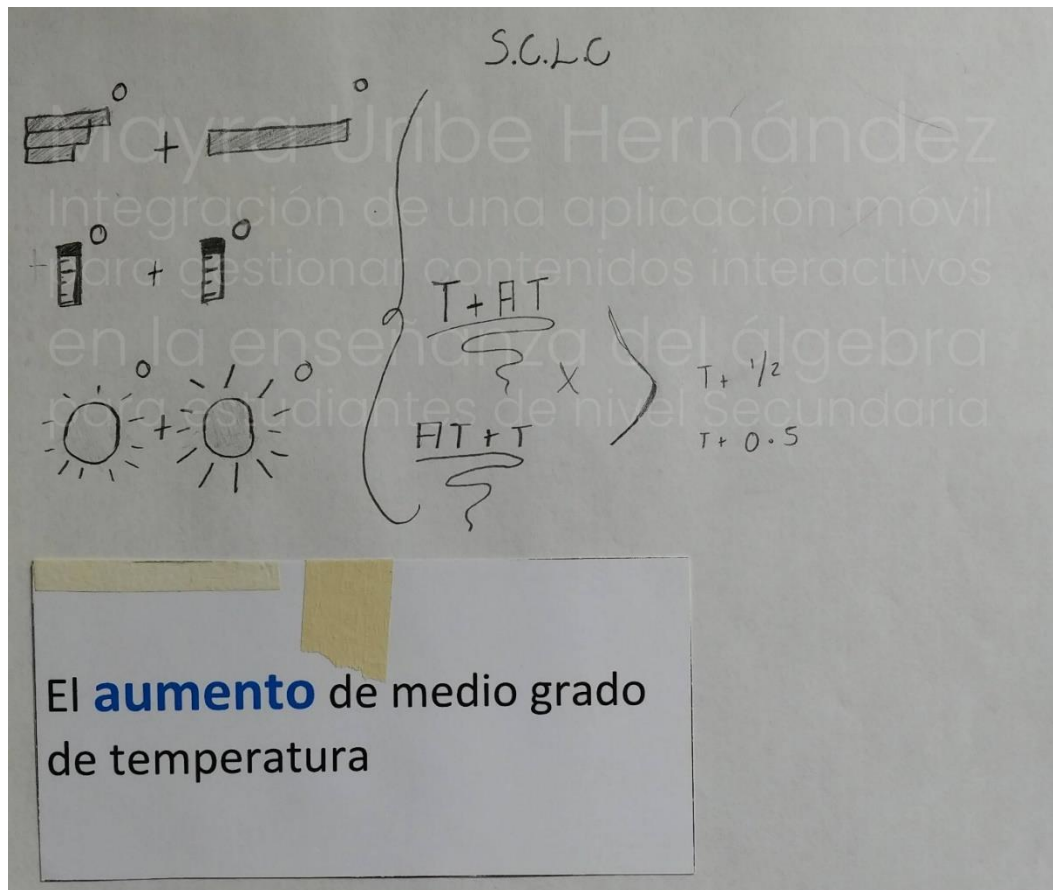 S.C.L.C
Mayra Uribe Hernández
Integración de una aplicación móvil
para gestionar contenidos interactivos
en la enseñanza del álgebra
para estudiantes de nivel Secundaria
+
+
+
T + AT
X
AT + T
T + 1/2
T + 0.5
El aumento de medio grado
de temperatura